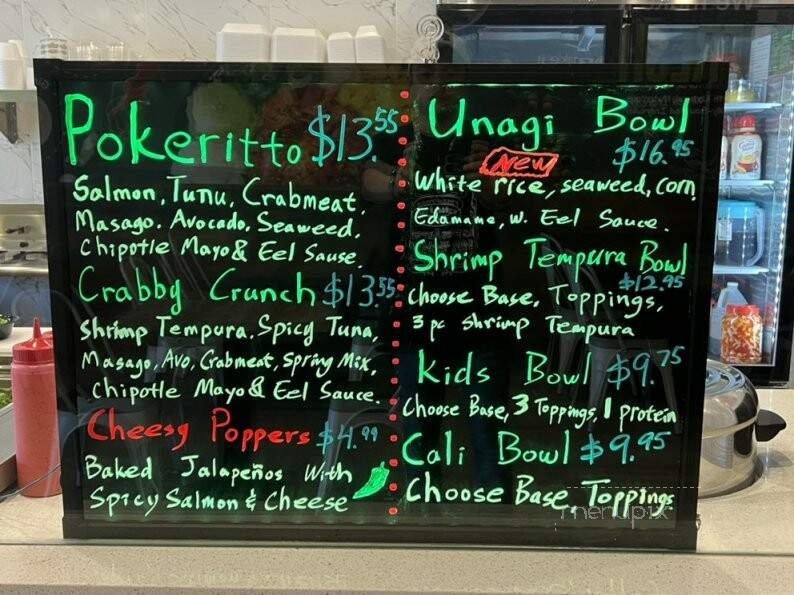 Pokeritto $13.55
Salmon, Tunu, Crabmeat,
Masago, Avocado, Seaweed,
Chipotle Mayo & Eel Sause
Crabby Crunch $13.55
Shrimp Tempura, Spicy Tuna,
Masago, Avo, Crabmeat, Spring Mix,
Chipotle Mayo & Eel Sauce.
Cheesy Poppers $4.99
Baked Jalapeños With
Spicy Salmon & Cheese
Unagi Bowl
New $16.95
White rice, seaweed, Corn,
Edamame, w. Eel Sauce.
Shrimp Tempura Bowl
$12.95
Choose Base, Toppings,
3 pc Shrimp Tempura
Kids Bowl $9.75
Choose Base, 3 Toppings, 1 protein
Cali Bowl $9.95
Choose Base, Toppings
menupix